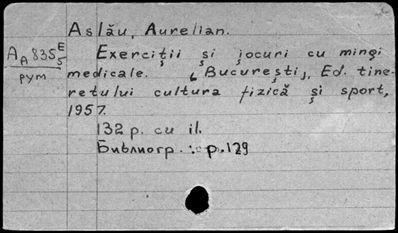 Aslău, Aurelian.
AA835 E/5
рум
Exerciții și jocuri cu mingi
medicale. [București], Ed. tine-
retului cultura fizică și sport,
1957.
132 p. cu il.
Библиогр.: p. 129